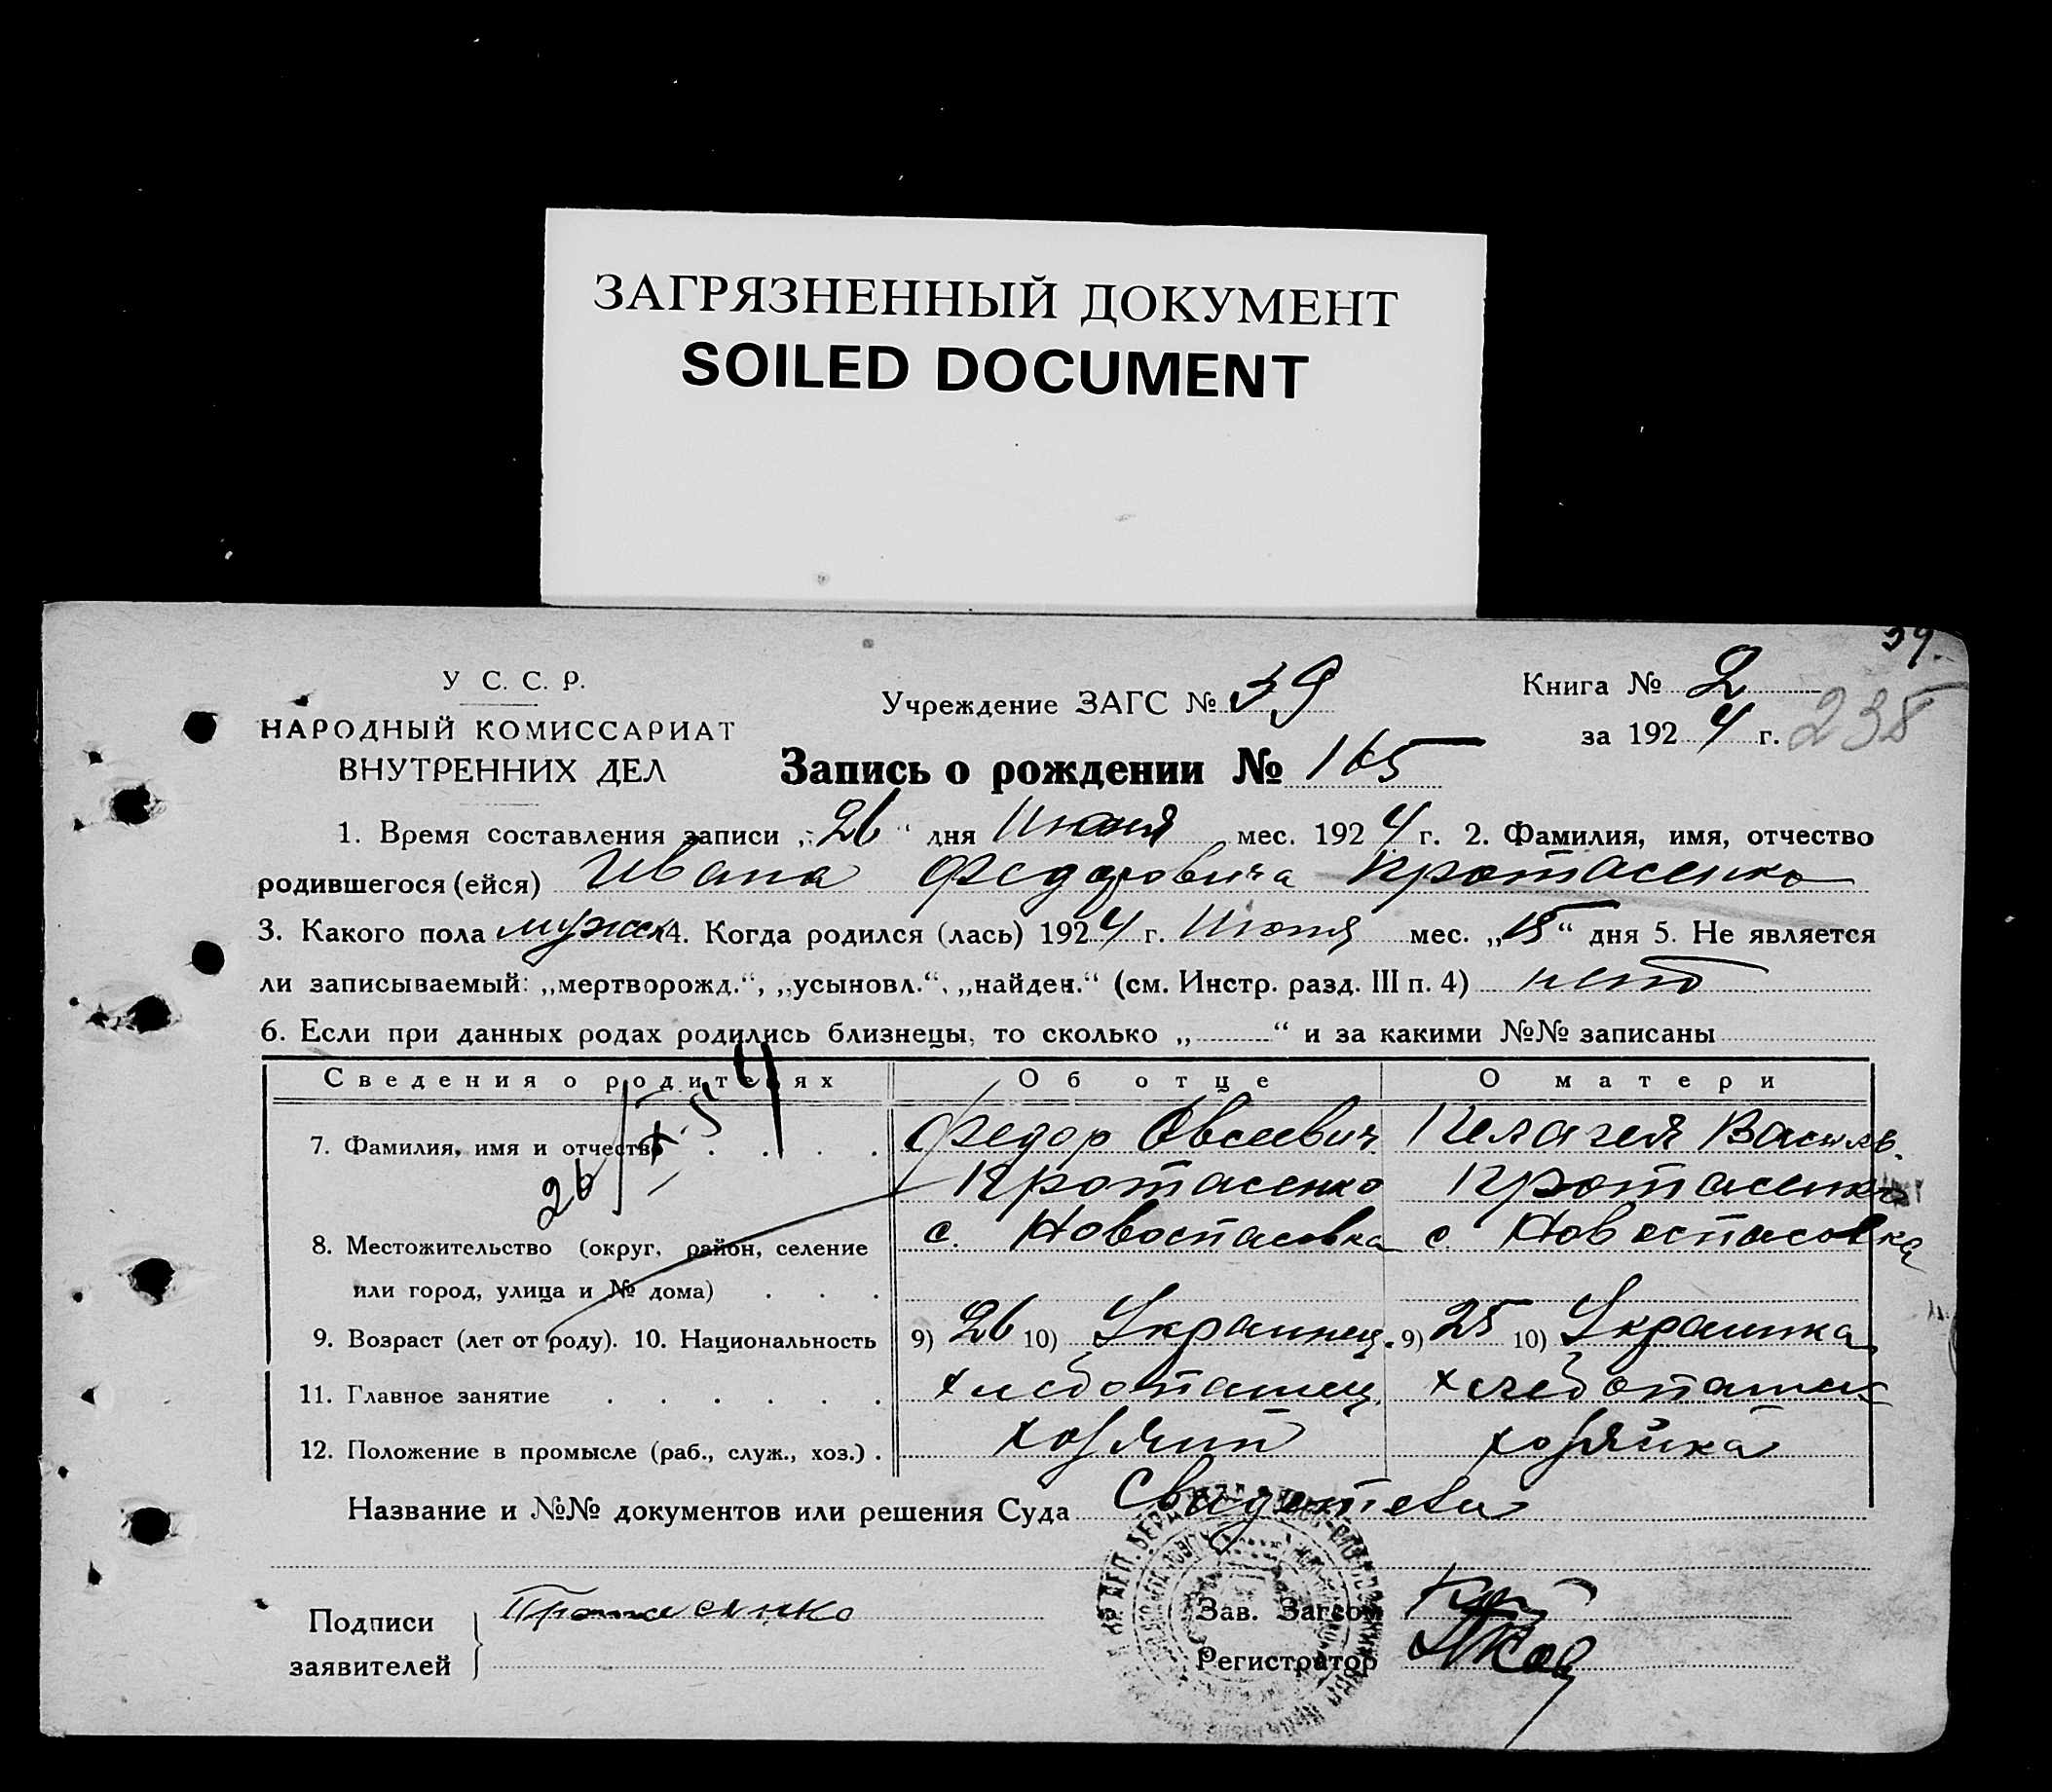 ЗАГРЯЗНЕННЫЙ ДОКУМЕНТ
SOILED DOCUMENT
39.
У С. С. Р.
НАРОДНЫЙ КОМИССАРИАТ
ВНУТРЕННИХ ДЕЛ
Учреждение ЗАГС № 39
Книга № 2
за 1924 г. 238
Запись о рождении № 165
1. Время составления записи „26“ дня Июня мес. 1924 г. 2. Фамилия, имя, отчество
родившегося (ейся) Ивана Федоровича Протасенко
3. Какого пола мужск 4. Когда родился (лась) 1924 г. Июня мес. „15“ дня 5. Не является
ли записываемый: „мертворожд.“, „усыновл.“, „найден.“ (см. Инстр. разд. III п. 4) нет
6. Если при данных родах родились близнецы, то сколько „ “ и за какими №№ записаны
Сведения о родителях Об отце О матери
7. Фамилия, имя и отчество . . . . Федор Овсеевич Пелагея Василь.
26/X-54 Протасенко Протасенко
8. Местожительство (округ, район, селение с. Новоспасовка с. Новоспасовка
или город, улица и № дома) . . .
9. Возраст (лет от роду). 10. Национальность 9) 26 10) Украинец. 9) 25 10) Украинка
11. Главное занятие . . . . . . хлебопашец.
12. Положение в промысле (раб., служ., хоз.) . хозяин хозяйка
Название и №№ документов или решения Суда
Подписи
заявителей
Протасенко
Зав. Загсом
Регистратор